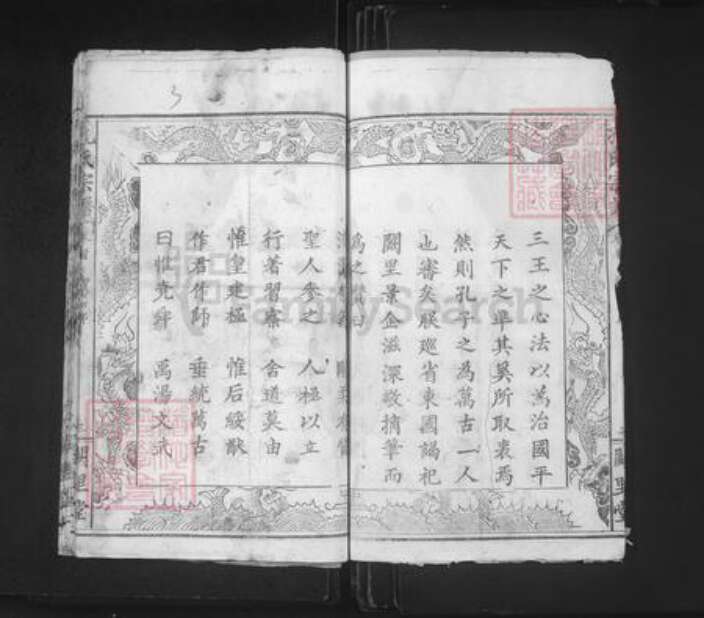 三王之心法以為治國平
天下之準其奚所取衷焉
然則孔子之為萬古一人
也審矣朕巡省東國謁祀
闕里景企滋深敬摛筆而
為之贊曰
聖人參之　人極以立
行著習察　舍道莫由
惟皇建極　惟后綏猷
作君作師　垂統萬古
曰惟堯舜　禹湯文武
闕里堂
FamilySearch